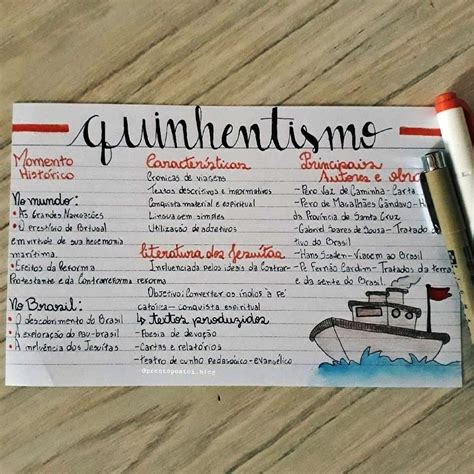 quinhentismo
Momento
Histórico
No mundo:
• As Grandes Navegações
• O prestígio de Portugal
em virtude de sua hegemonia
marítima.
• Efeitos da Reforma
Protestante e da Contrarreforma
No Brasil:
• O descobrimento do Brasil
• A exploração do pau-brasil
• A influência dos Jesuítas
Características
Crônicas de viagens
Textos descritivos e informativos
Conquista material e espiritual
Linguagem simples
Utilização de adjetivos
literatura dos Jesuítas
Influenciada pelos ideais da Contrar-
reforma
Objetivo: Converter os índios à fé
católica - conquista espiritual
↳ textos produzidos
- Poesia de devoção
- Cartas e relatórios
- Teatro de cunho pedagógico-evangélico
@prontopostei.blog
Principais
Autores e obras
- Pero Vaz de Caminha - Carta
- Pero de Magalhães Gândavo - H
da Província de Santa Cruz
- Gabriel Soares de Sousa - Tratado
tivo do Brasil
- Hans Staden - Viagem ao Brasil
- Pe. Fernão Cardim - Tratados da terra
e da gente do Brasil.